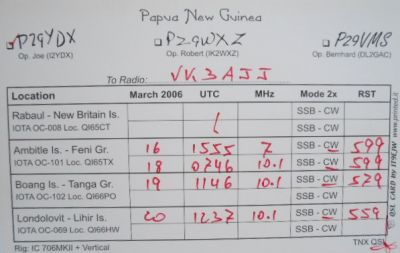 Papua New Guinea
P29YDX P29WXZ P29VMS
Op. Joe (I2YDX) Op. Robert (IK2WXZ) Op. Bernhard (DL2GAC)
To Radio: VK3AJJ
Location March 2006 UTC MHz Mode 2x RST
Rabaul - New Britain Is. SSB - CW
IOTA OC-008 Loc. QI65CT
Ambitle Is. - Feni Gr. 16 1555 7 SSB - CW 599
IOTA OC-101 Loc. QI65TX 18 0746 10.1 SSB - CW 599
Boang Is. - Tanga Gr. 19 1146 10.1 SSB - CW 579
IOTA OC-102 Loc. QI66PO SSB - CW
Londolovit - Lihir Is. 20 1237 10.1 SSB - CW 559
IOTA OC-069 Loc. QI66HW SSB - CW
Rig: IC 706MKII + Vertical TNX QSL
QSL CARD by IT9EJW www.printed.it